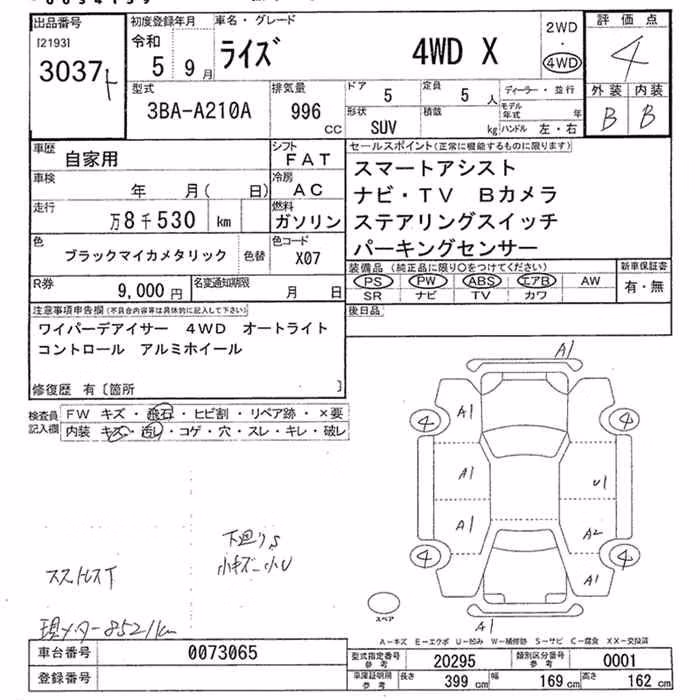 出品番号 初度登録年月 車名・グレード 2WD 評価点
[2193] 令和 ・ 4
3037 5 9月 ライズ 4WD X 4WD
型式 排気量 ドア 5 定員 5人 ディーラー・並行 外装 内装
3BA-A210A 996 CC 形状 SUV 積載 kg モデル年式 年 B B
ハンドル 左・右
車歴 自家用 シフト FAT セールスポイント(正常に機能するものに限ります)
車検 年 月( 日) 冷房 AC スマートアシスト
走行 万8千530 km 燃料 ガソリン ナビ・TV Bカメラ
ステアリングスイッチ
色 ブラックマイカメタリック 色替 色コード X07 パーキングセンサー
R券 9,000円 名変通知期限 月 日 装備品 (純正品に限り○をつけてください) 新車保証書
PS PW ABS エアB AW 有・無
SR ナビ TV カワ
注意事項申告欄(不具合内容等は具体的に記入して下さい) 後日品
ワイパーデアイサー 4WD オートライト
コントロール アルミホイール
修復歴 有〔箇所 〕
検査員 FW キズ・飛石・ヒビ割・リペア跡・×要
記入欄 内装 キズ・汚レ・コゲ・穴・スレ・キレ・破レ
A1
4 A1 4
A1 U1
A1 A2
4 4
A1
A1
下廻りS
小キズ 小U
スペア
現メーター8521km
A-キズ E-エクボ U-凹み W-補修跡 S-サビ C-腐食 XX-交換済
車台番号 0073065
登録番号
型式指定番号 参考 20295 類別区分番号 参考 0001
車庫証明用 参考 長さ 399 cm 幅 169 cm 高さ 162 cm